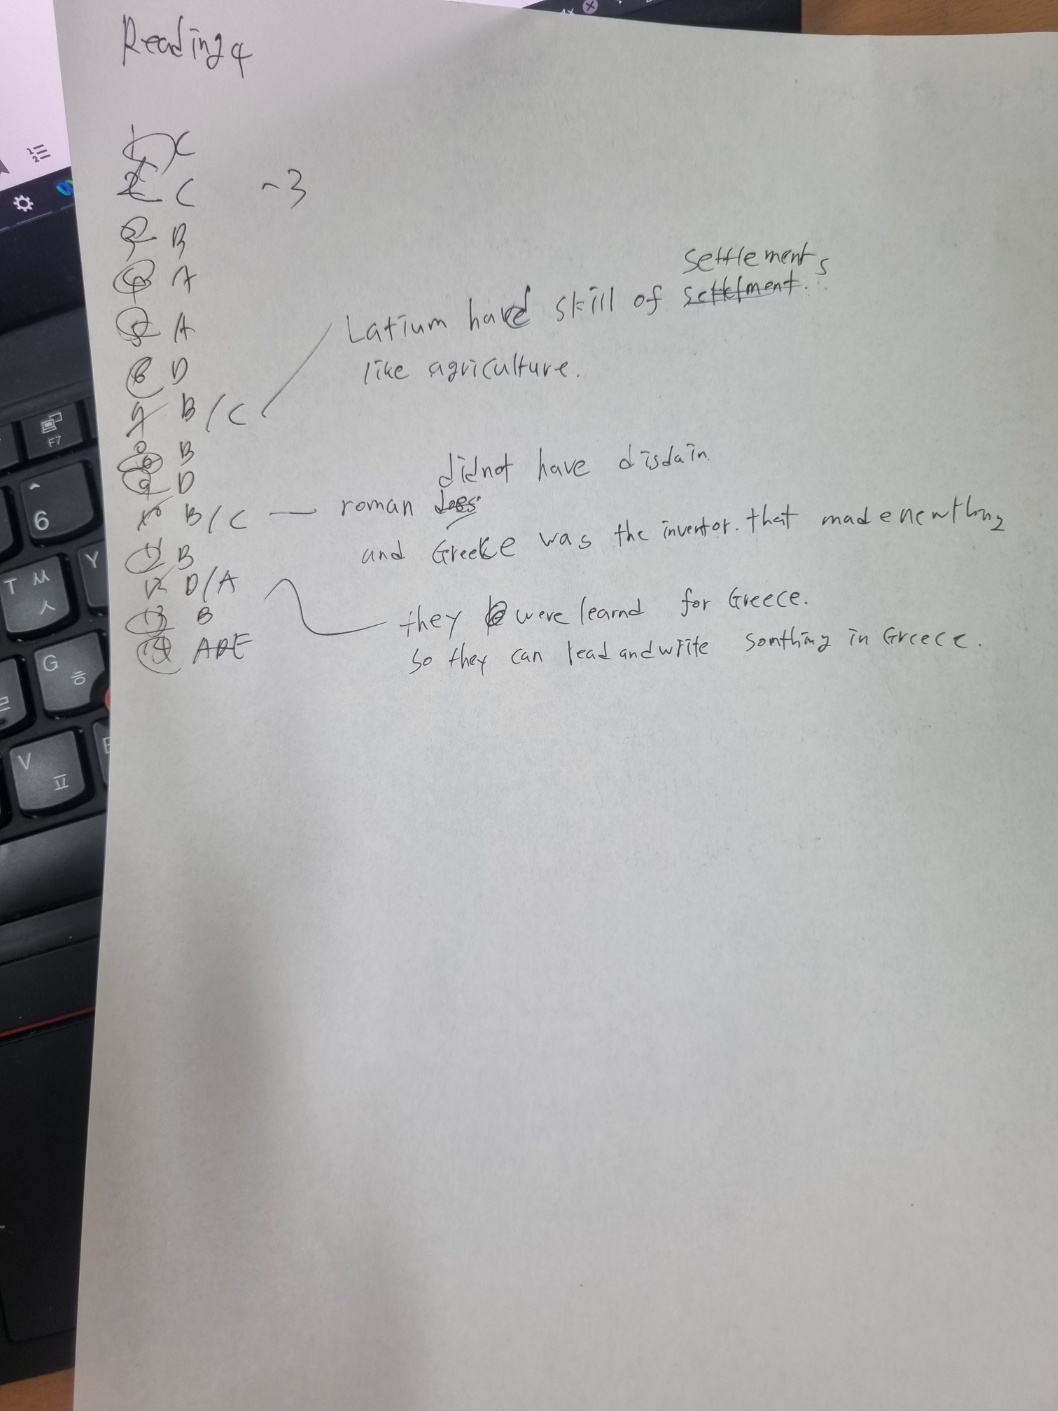 Reading 4
1 C
2 C ~3
3 B
4 A
5 A
6 D
7 B/C
Latium had skill of settlements
like agriculture.
8 B
9 D
10 B/C
roman didnot have disdain.
and Greece was the inventor. that made new thing
11 B
12 D/A
they were learnd for Greece.
so they can read and write somthing in Greece.
13 B
14 ADE
F7
6
T
ㅅ
Y
G
ㅎ
V
ㅍ